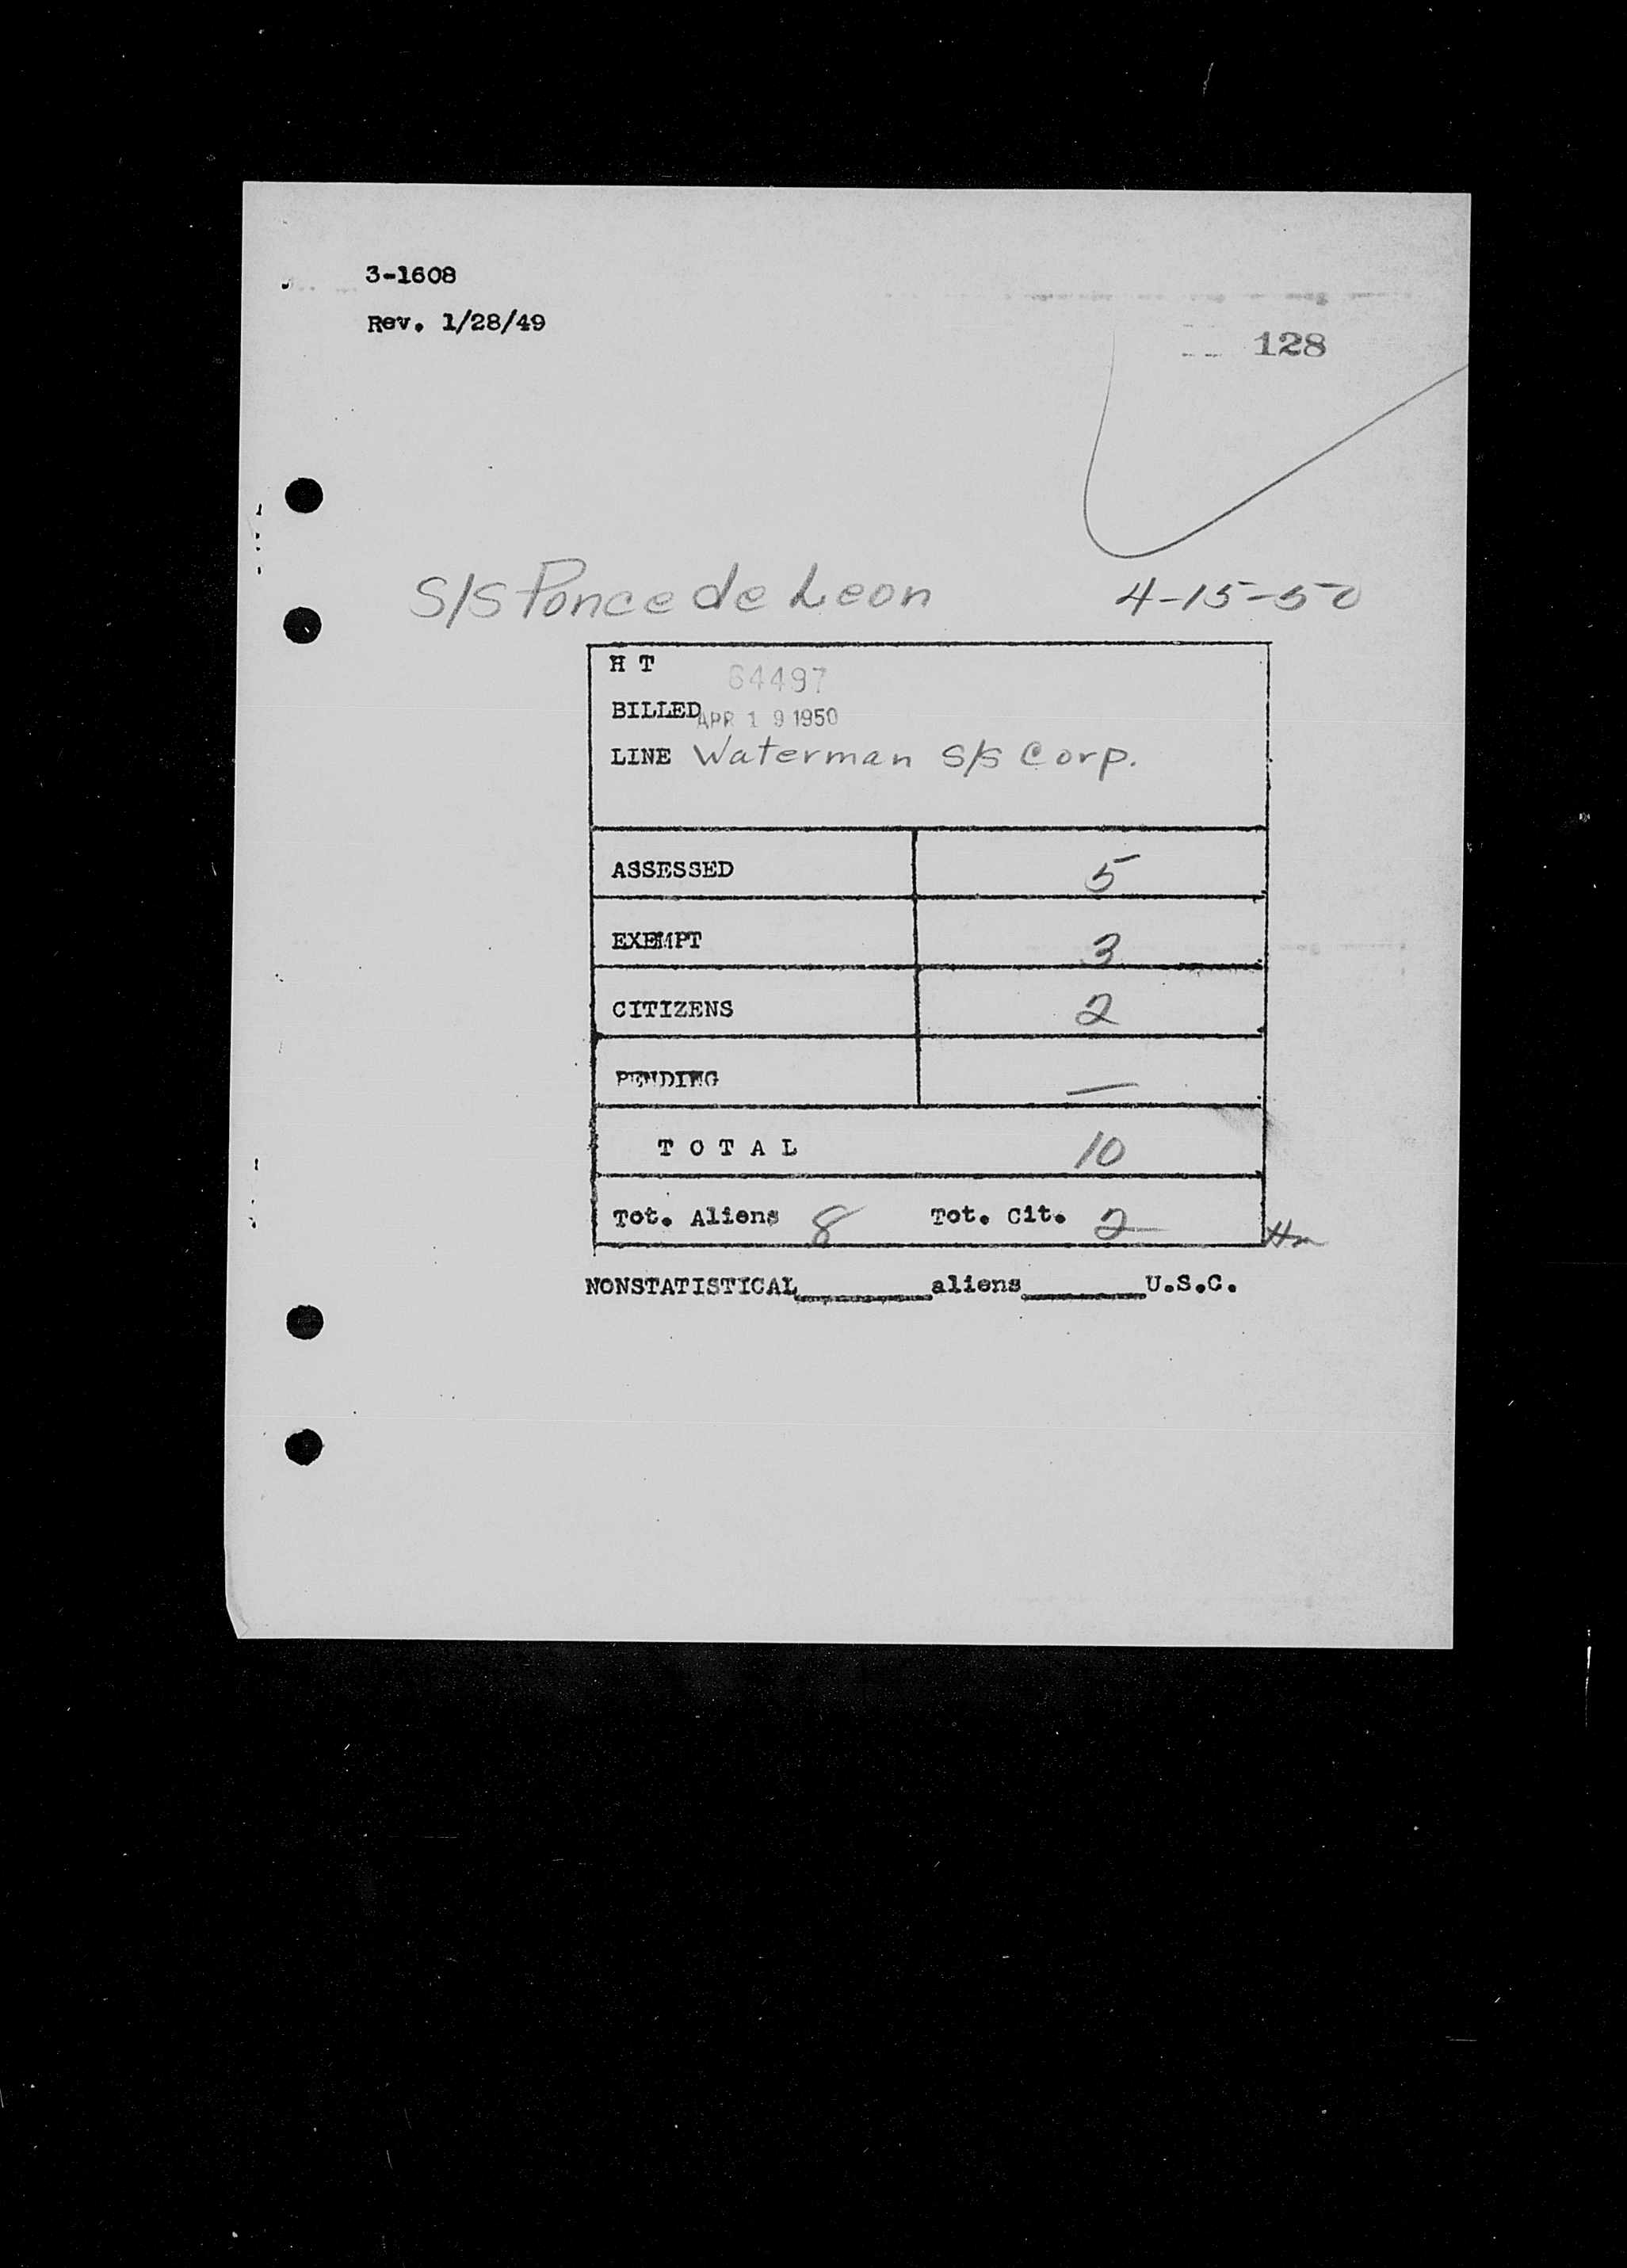 3-1608
Rev. 1/28/49
128
S/S Ponce de Leon 4-15-50
H T 64497
BILLED APR 19 1950
LINE Waterman S/S Corp.
ASSESSED 5
EXEMPT 3
CITIZENS 2
PENDING —
T O T A L 10
Tot. Aliens 8 Tot. Cit. 2
NONSTATISTICAL________aliens________U.S.C.